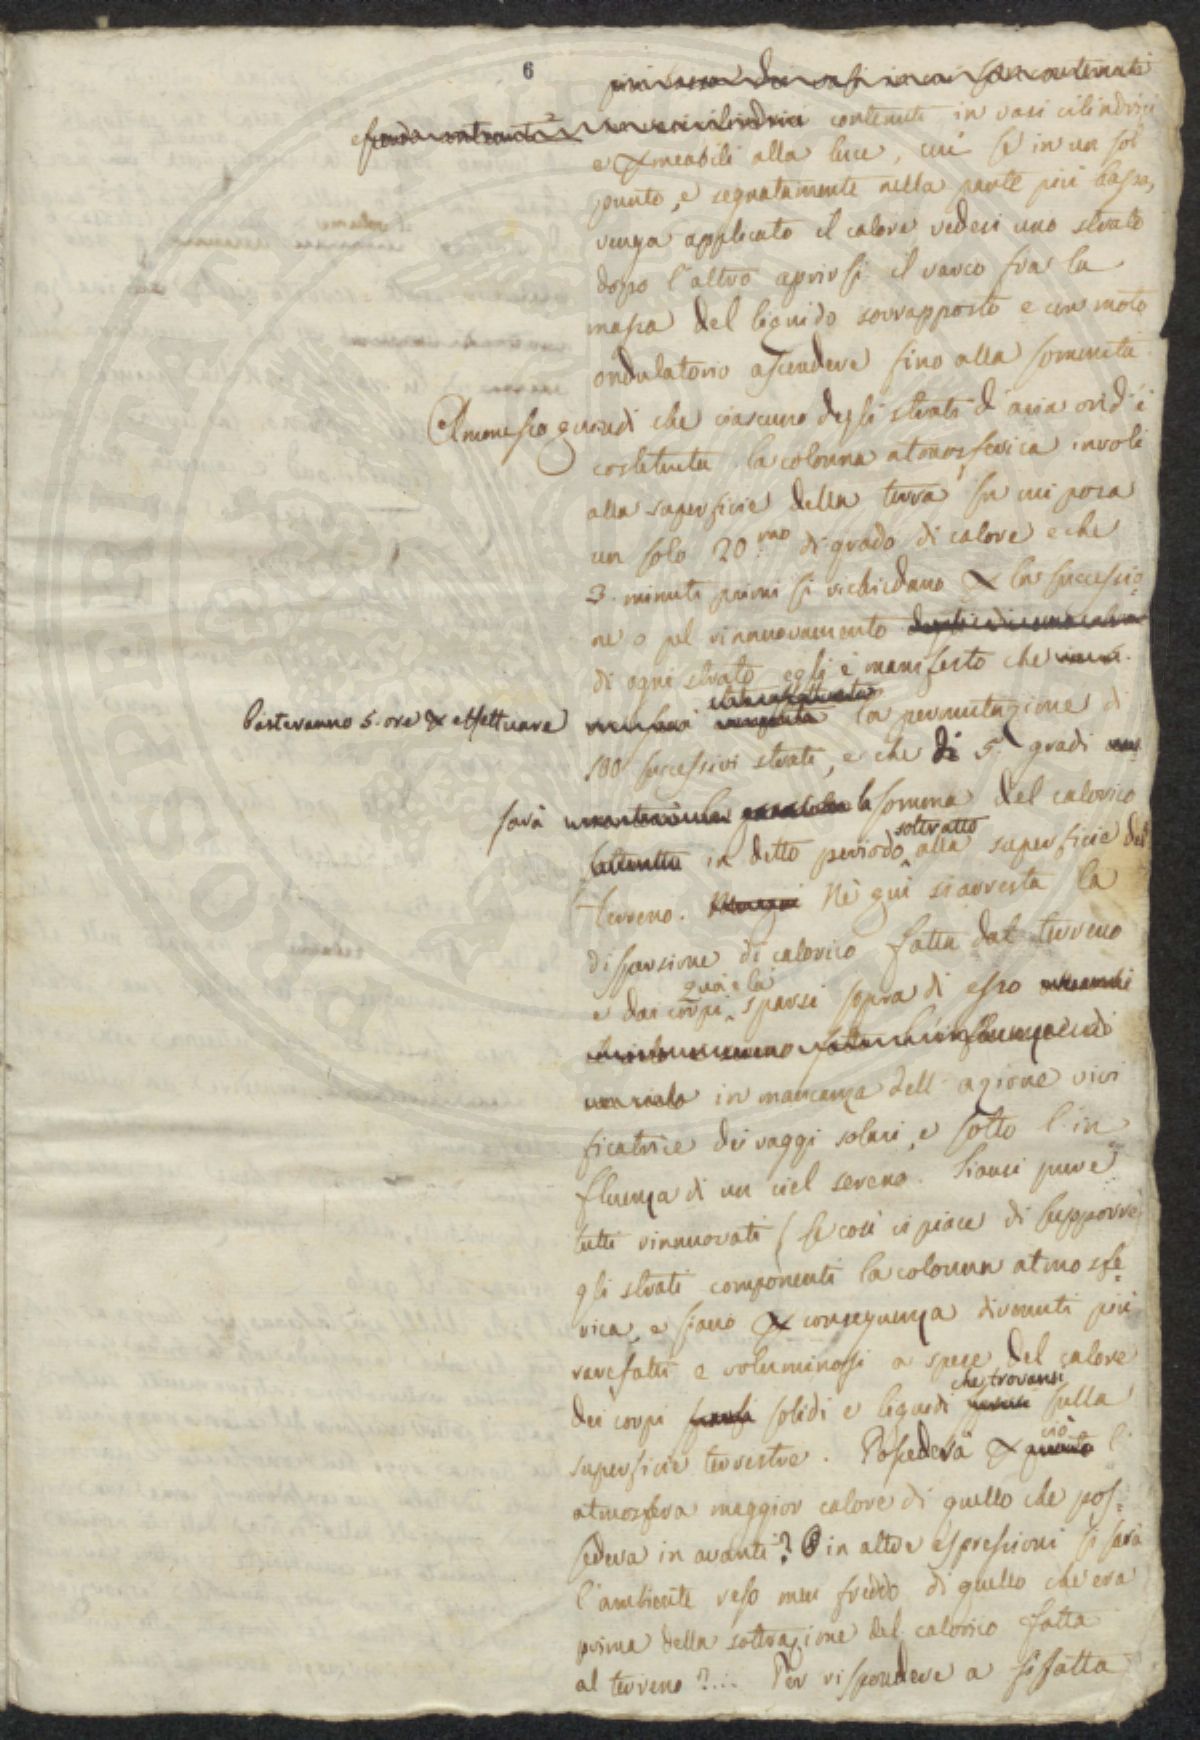 6
contenuti in vasi cilindrici
e permeabili alla luce, cui se in un sol
punto, e segnatamente nella parte più bassa,
venga applicato il calore vedesi uno strato
dopo l'altro aprirsi il varco fra la
massa del liquido sovrapposto e con moto
ondulatorio ascendere fino alla sommità.
Ammesso quindi che ciascuno degli strati d'aria ond'è
costituita la colonna atmosferica involi
alla superficie della terra su cui posa
un solo 20.mo di grado di calore e che
3. minuti primi si richiedano per la successio=
ne o pel rinnuovamento
di ogni strato egli è manifesto che
basteranno 5. ore per effettuare la permutazione di
100 successivi strati, e che di 5. gradi
sarà la somma del calorico
in detto periodo sottratto alla superficie del
terreno. Nè quì si arresta la
dispersione di calorico fatta dal terreno
e dai corpi quà e là sparsi sopra di esso
in mancanza dell'azione vivi
ficatrice dei raggi solari, e sotto l'in
fluenza di un ciel sereno. Siansi pure
tutti rinnuovati (se così ci piace di supporre)
gli strati componenti la colonna atmosfe=
rica, e siano per conseguenza divenuti più
rarefatti e voluminosi a spese del calore
dei corpi solidi e liquidi che trovansi sulla
superficie terrestre. Possederà per ciò l'
atmosfera maggior calore di quello che pos=
sedeva in avanti? O in altre espressioni si sarà
l'ambiente reso men freddo di quello ch'era
prima della sottrazione del calorico fatta
al terreno?... Per rispondere a sifatta